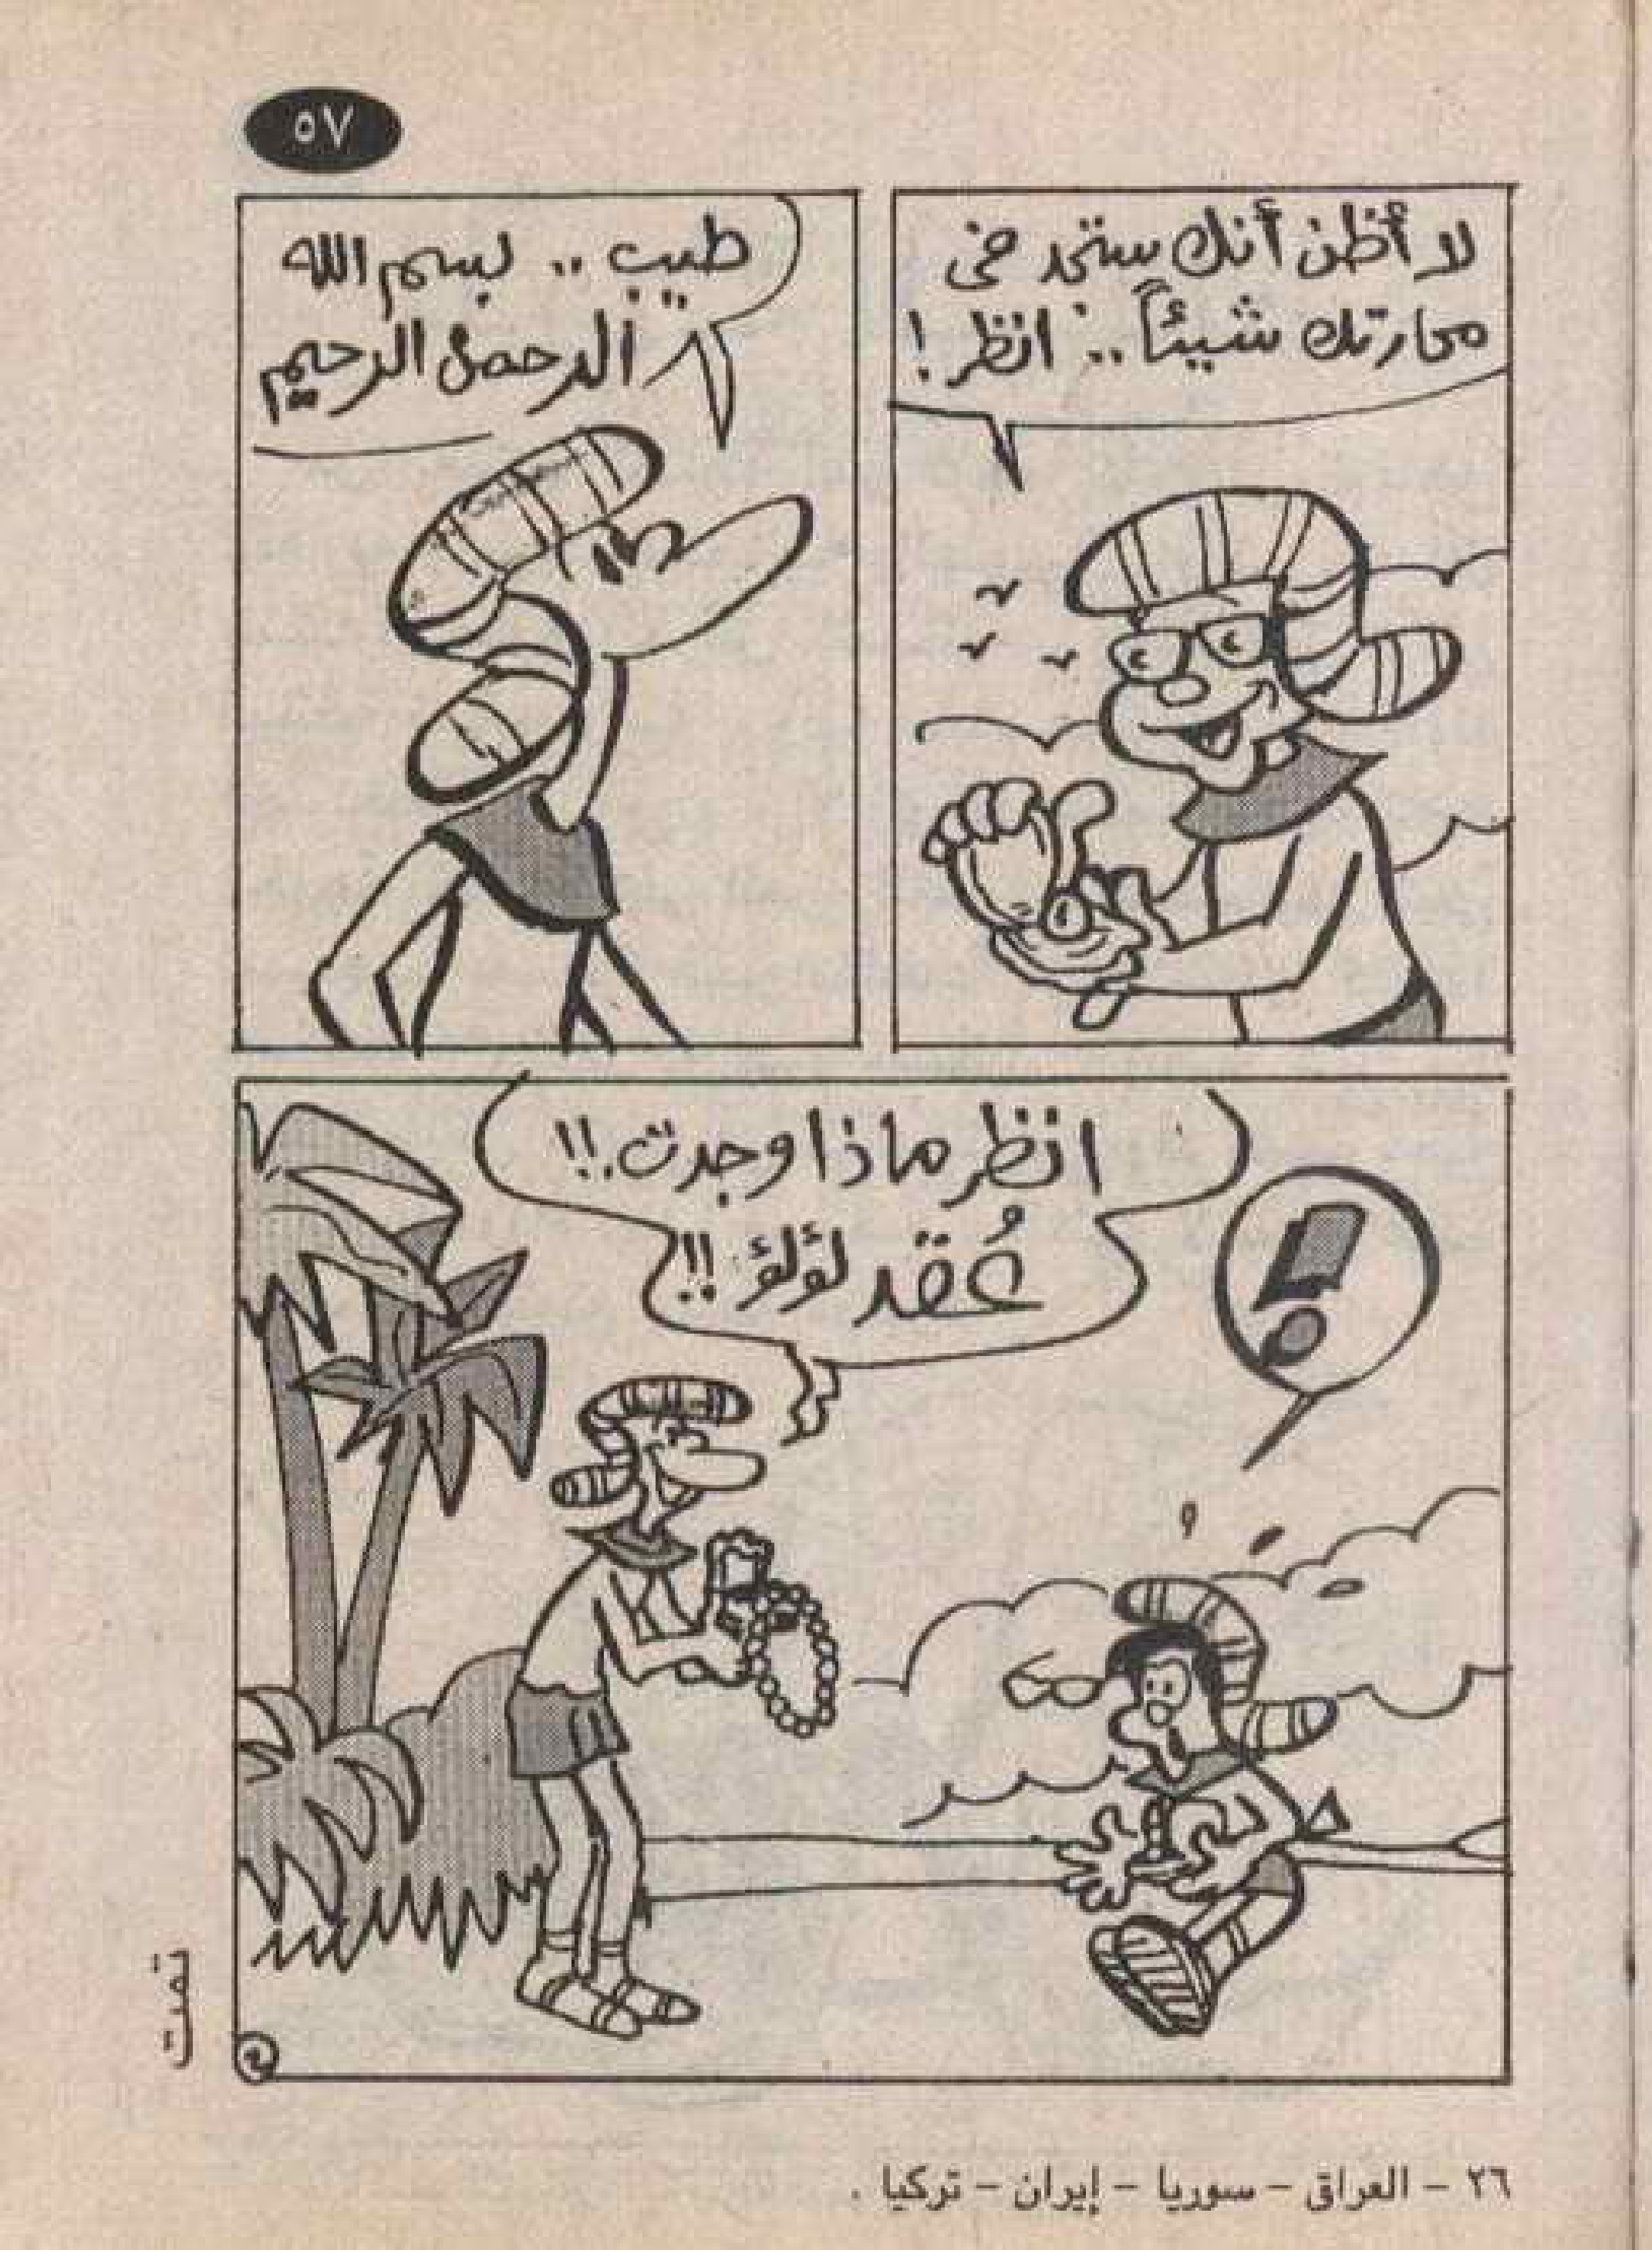 ٥٧
لا أظن أنك ستجد في
محارتك شيئاً .. انظر !
طيب .. بسم الله
الرحمن الرحيم
انظر ماذا وجدت !!
عُقد لؤلؤ !!
!
تمت
٢٦ - العراق - سوريا - إيران - تركيا .